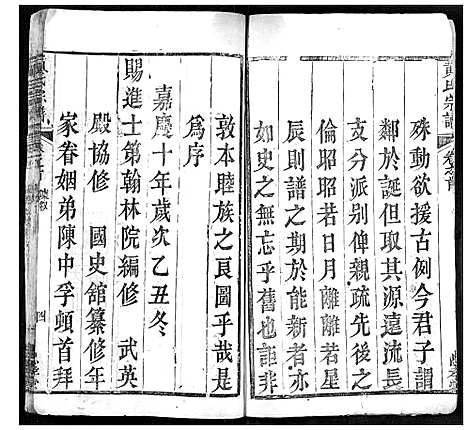 殊動欲援古例今君子謂
鄰於誕但取其源遠流長
支分派別俾親疏先後之
倫昭昭若日月離離若星
辰則譜之期於能新者也
如史之一無忘乎舊也詎非
敦本睦族之良圖乎哉是
爲序
嘉慶十年歲次乙丑冬
賜進士第翰林院編修 武英
殿協修 國史館纂修年
家眷姻弟陳中孚頓首拜
黃氏宗譜
四